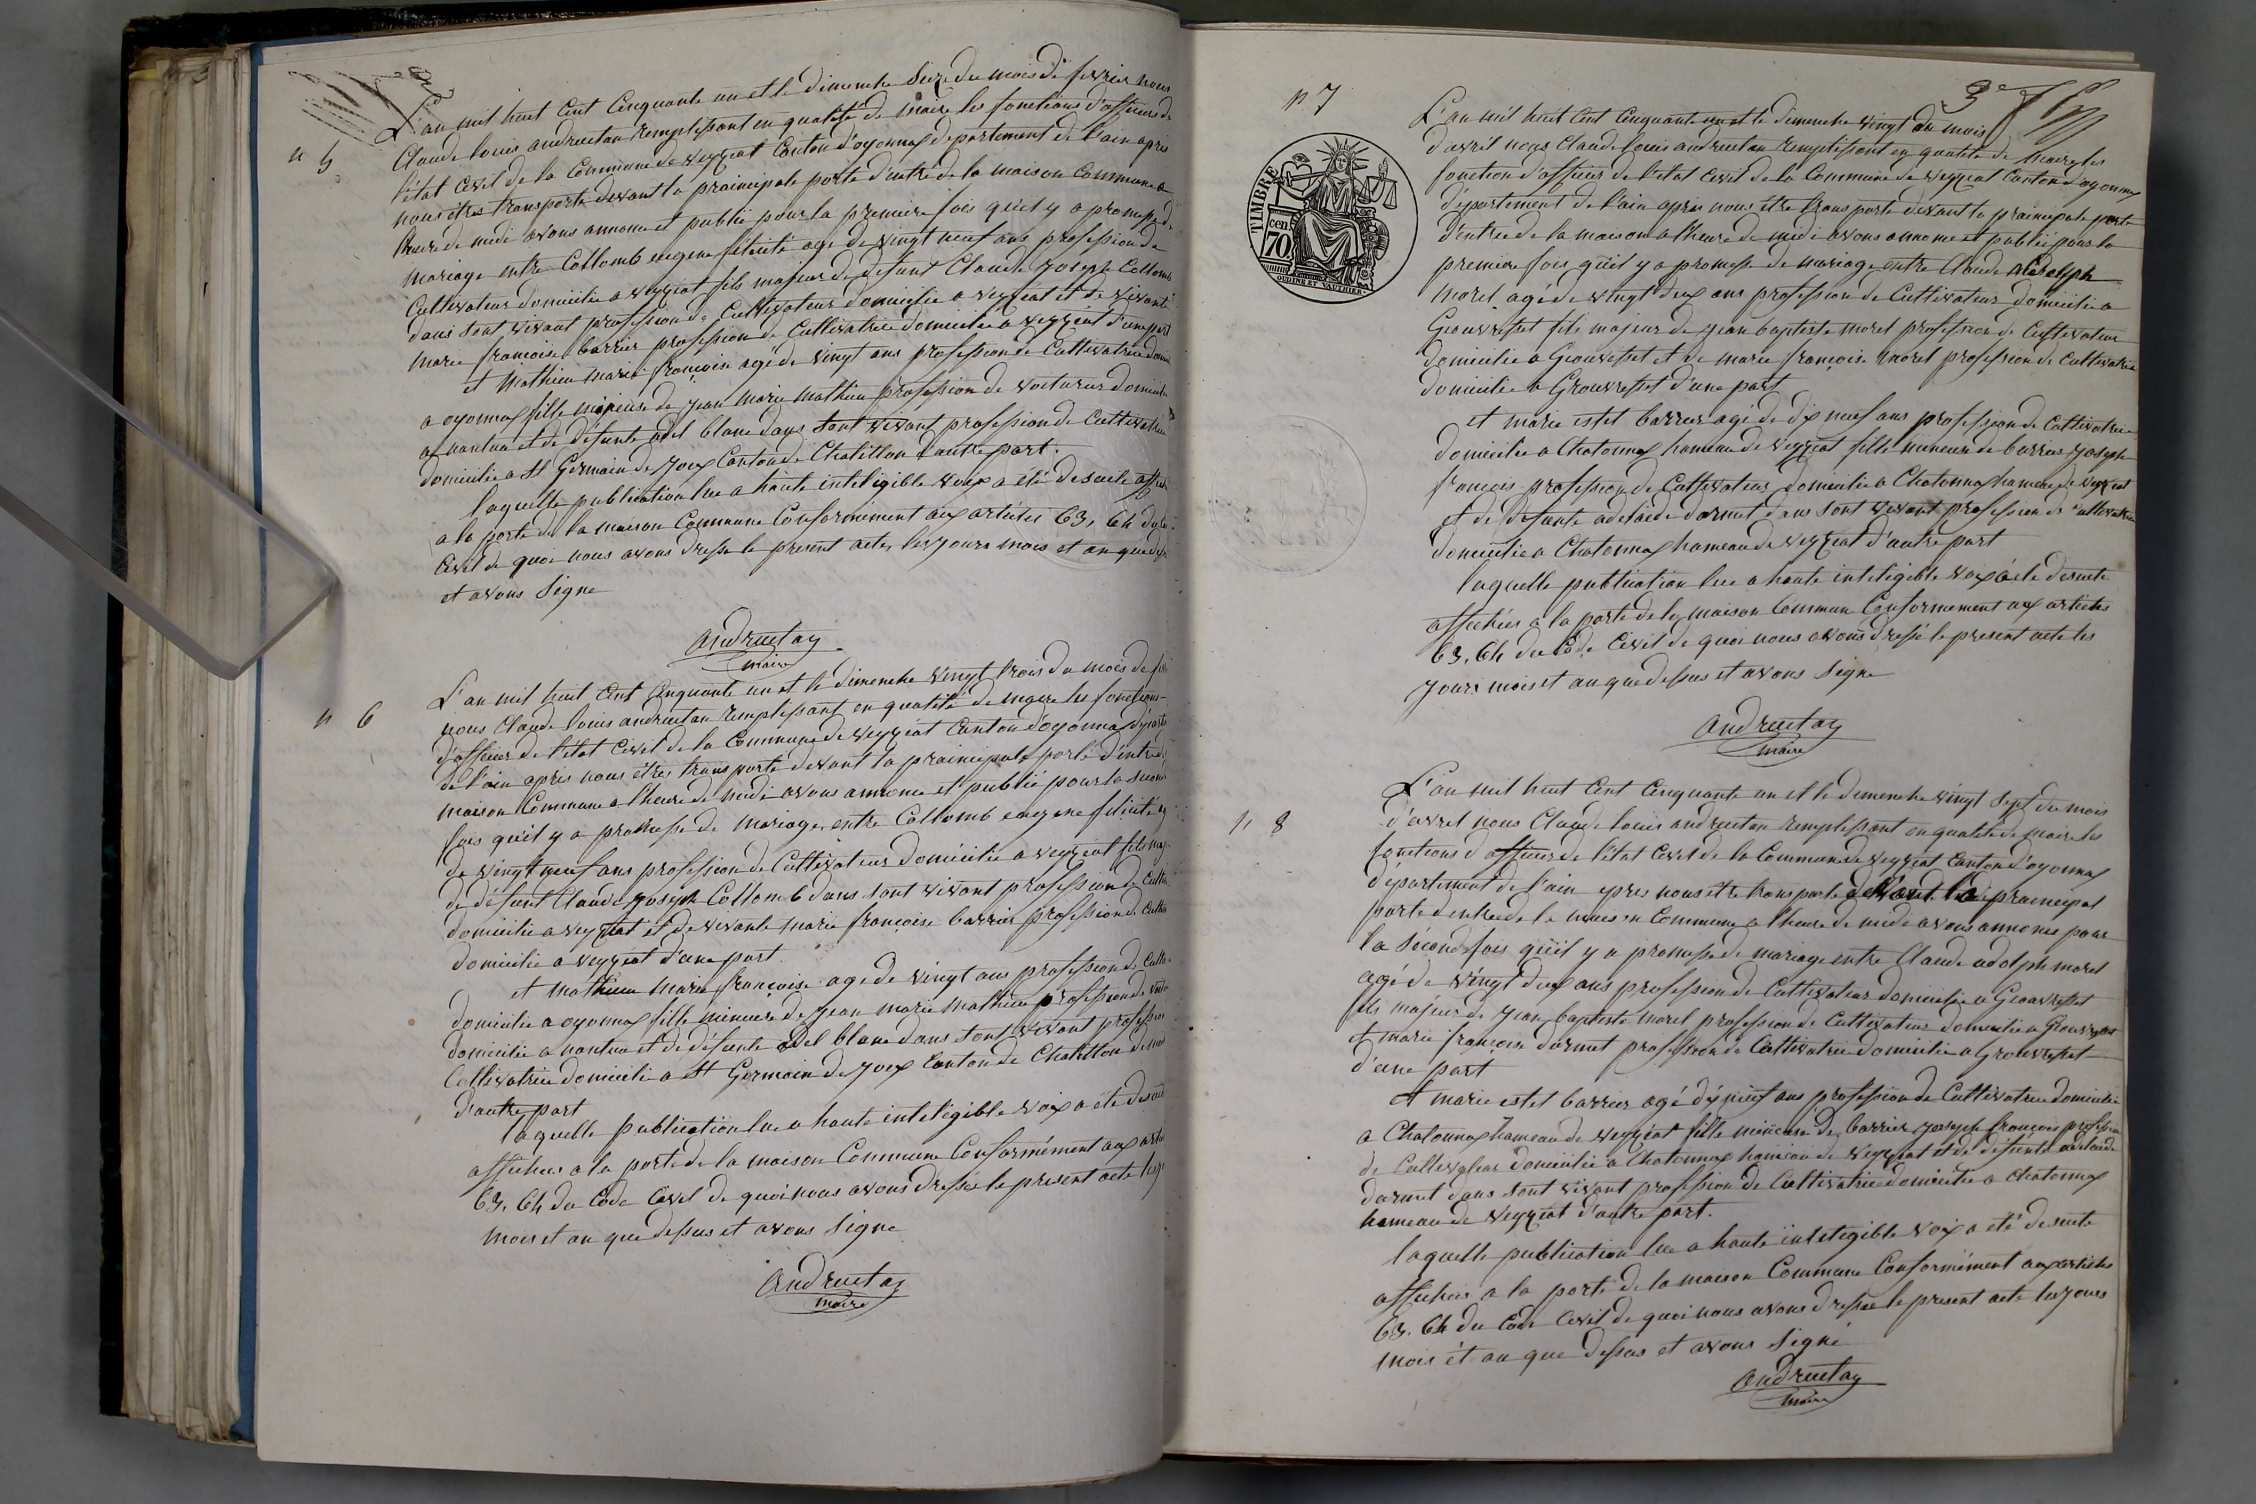 n 5
L'an mil huit cent cinquante un et le dimenche seize du mois de fevrier nous
Claude louis andruetan remplissant en qualité de maire les fonctions d'officier de
l'état civil de la Commune de veyziat Canton d'oyonnax departement de l'ain après
nous êtres transporté devant la praincipale porte d'entré de la maison Commune a
l'heure de midi avons annoncé et publié pour la premiere fois qu'il y a promesse de
mariage entre Collomb eugene felicité age de vingt neuf ans profession de
Cultivateur domicilie a veyziat fils majeur de défunt Claude Joseph Collomb
dans sont vivant profession de Cultivateur domicilie a veyziat et de vivante
marie françoise barrier profession de Cultivatrice domicilie a veyziat d'une part
et Mathieu Marie françoise agé de vingt ans profession de Cultivatrice
a oyonnax fille mineuse de jean marie mathieu profession de voiturier
a nantua et de défunte adel blanc dans sont vivant profession de Cultivatrice
domicilie a St Germain de Joux Canton de Chatillon d'autre part.
laquelle publication lue a haute inteligible voix a été de suite
a la porte de la maison Commune Conformement aux articles 63, 64 du
Civil de quoi nous avons dressé le present acte, les jours mois et an que
et avons signe
andruetan
maire
n 6
L'an mil huit cent cinquante un et le dimenche vingt trois du mois de
nous Claude louis andruetan remplissant en qualité de maire les fonctions
d'officier de l'état civil de la Commune de veyziat Canton d'oyonnax
de l'ain après nous êtres transporté devant la prainipale porte d'entré
maison Commune a l'heure de midi avons annoncé et publié pour la
fois qu'il y a promesse de mariage entre Collomb eugene felicité
de vingt neuf ans profession de Cultivateur domicilie a veyziat fils
de défunt Claude Joseph Collomb dans sont vivant profession de
domicilie a veyziat et de vivante marie françoise barrier profession de
domicilie a veyziat d'une part
et mathieu marie françoise age de vingt ans profession de
domicilie a oyonnax fille mineure de jean marie mathieu profession de
domicilie a nantua et de défunte adel blanc dans sont vivant profession
Cultivatrice domicilie a St Germain de Joux Canton de Chatillon de
d'autre part
laquelle publication lue a haute inteligible voix a été de
affichée a la porte de la maison Commune Conformément aux
63, 64 du Code Civil de quoi nous avons dressée le present acte
mois et an que dessus et avons signe
andruetan
maire
3e
n 7
TIMBRE
70 cen
OUDINE ET VAUTHIER
L'an mil huit cent cinquante un et le dimenche vingt du mois
d'avril nous Claude louis andruetan remplissant en qualité de maire les
fonction d'officier de l'état civil de la Commune de veyziat Canton d'oyonnax
département de l'ain après nous être transporté devant la prainipale porte
d'entrée de la maison a l'heure de midi avons annoncé et publié pour la
premiere fois qu'il y a promesse de mariage entre Claude adolph
Morel agé de vingt deux ans profession de Cultivateur domicilie a
Geouvresset fils majeur de jean baptiste morel profession de Cultivateur
domicilie a Geouvresset et de marie françoise morel profession de Cultivatrice
domicilie a Grouvresset d'une part
et marie estel barrier agé de dix neuf ans profession de Cultivatrice
domicilie a Chatonnax hameau de veyziat fille mineure de barrier joseph
françois profession de Cultivateur domicilie a Chatonnax hameau de veyziat
et de defunte adelaide darmet dans sont vivant profession de Cultivatrice
domicilie a Chatonnax hameau de veyziat d'autre part
laquelle publication lue a haute inteligible voix a éte de suite
affichée a la porte de la maison Commune Conformement aux articles
63, 64 du Code Civil de quoi nous avons dressé le present acte les
jours mois et an que dessus et avons signe
andruetan
maire
n 8
L'an mil huit cent cinquante un et le dimenche vingt sept du mois
d'avril nous Claude louis andruetan remplissant en qualite de maire les
fonctions d'officier de l'état Civil de la Commune de veyziat Canton d'oyonnax
département de l'ain apres nous être transporté devant la prainicipal
porte d'entrée de la maison Commune a l'heure de midi avons annoncé pour
la seconde fois qu'il y a promesse de mariage entre Claude adolph morel
agé de vingt deux ans profession de Cultivateur domicilie a Geouvresset
fils majeur de jean baptiste morel profession de Cultivateur domicilie a Geouvresset
et marie françoise darmet profession de Cultivatrice domicilie a Grouvresset
d'une part
et marie estel barrier agé dix neuf ans profession de Cultivatrice domicilie
a Chatonnax hameau de veyziat fille mineure de barrier joseph françois profession
de Cultivateur domicilie a Chatonnax hameau de veyziat et de défunte adelaide
darmet dans sont vivant profession de Cultivatrice domicilie a Chatonnax
hameau de veyziat d'autre part.
laquelle publication lue a haute inteligible voix a été de suite
affichée a la porte de la maison Commune Conformément aux articles
63, 64 du Code Civil de quoi nous avons dressée le present acte les jours
mois et an que dessus et avons signé
andruetan
maire